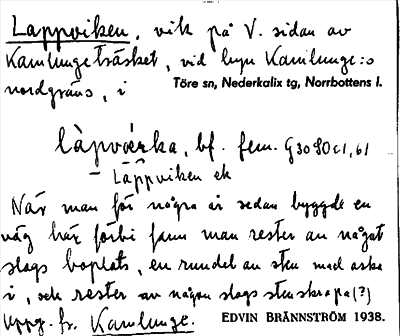 Lappviken, vik på V. sidan av
Kamlungeträsket, vid byn Kamlunge:s
nordgräns, i
Töre sn, Nederkalix tg, Norrbottens l.
bf. fem. G3080c1,61
– Lappviken ek
När man för några år sedan byggde en
väg här förbi fann man rester av något
slags boplats, en rundel av sten med aska
i, och rester av någon slags stenskrapa(?)
Uppg. fr. Kamlunge.
EDVIN BRÄNNSTRÖM 1938.